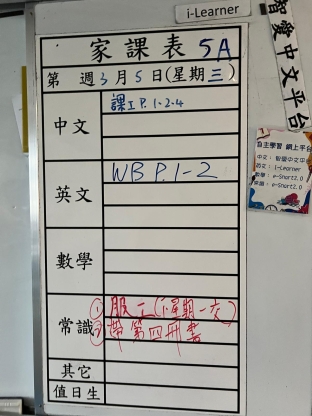 i-Learner
智愛中文平台
家課表 5A
第 週3月5日(星期三)
中文
課工P.1-2.4
英文
WB P.1-2
數學
常識
①服工(下星期一交)
②帶第四冊書
其它
值日生
自主學習 網上平台
中文：智愛中文平台
英文：i-Learner
數學：e-Smart2.0
常識：e-Smart2.0